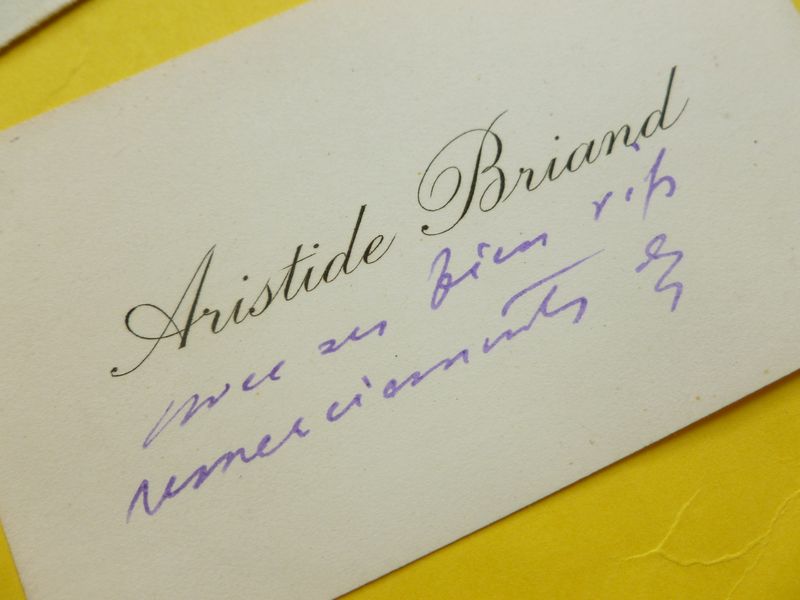 Aristide Briand
avec ses bien vifs
remerciements